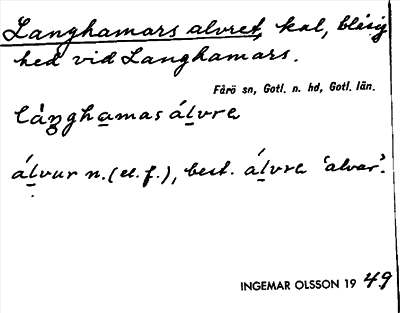 Langhamars alvret, kal, blåsig
hed vid Langhamars.
Fårö sn, Gotl. n. hd, Gotl. län.
láŋghamas álvrɐ
álvur n. (el. f.), best. álvrɐ 'alvar'.
INGEMAR OLSSON 19 49